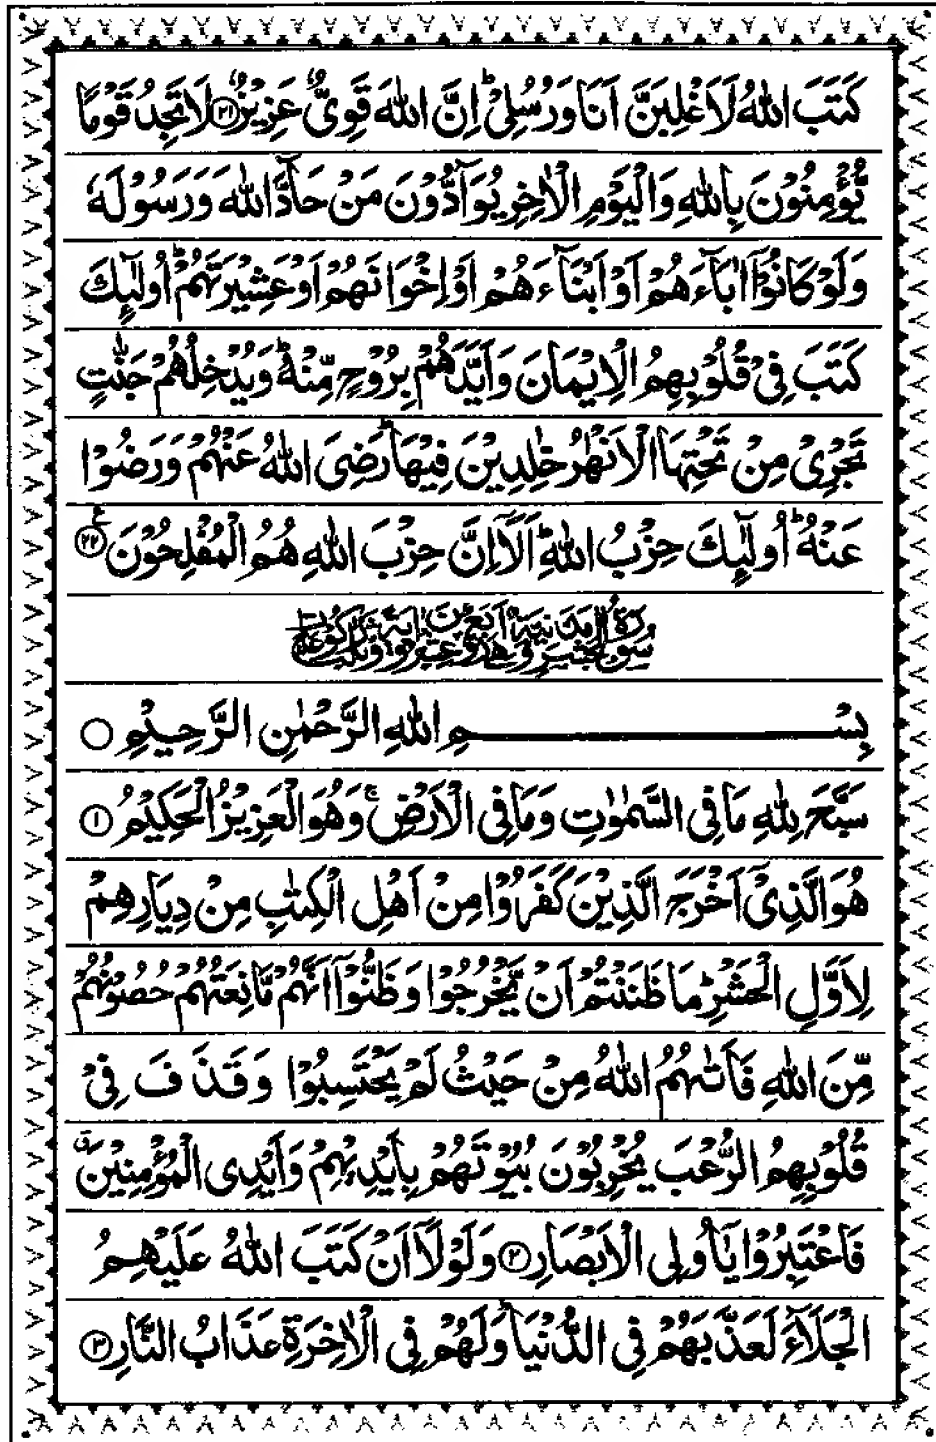 كَتَبَ اللّٰهُ لَاَغْلِبَنَّ اَنَا وَرُسُلِیْ ؕ اِنَّ اللّٰهَ قَوِیٌّ عَزِیْزٌ ﴿۲۱﴾ لَا تَجِدُ قَوْمًا
یُّؤْمِنُوْنَ بِاللّٰهِ وَالْیَوْمِ الْاٰخِرِ یُوَآدُّوْنَ مَنْ حَآدَّ اللّٰهَ وَرَسُوْلَهٗ
وَلَوْ كَانُوْۤا اٰبَآءَهُمْ اَوْ اَبْنَآءَهُمْ اَوْ اِخْوَانَهُمْ اَوْ عَشِیْرَتَهُمْ ؕ اُولٰٓىِٕكَ
كَتَبَ فِیْ قُلُوْبِهِمُ الْاِیْمَانَ وَاَیَّدَهُمْ بِرُوْحٍ مِّنْهُ ؕ وَیُدْخِلُهُمْ جَنّٰتٍ
تَجْرِیْ مِنْ تَحْتِهَا الْاَنْهٰرُ خٰلِدِیْنَ فِیْهَا ؕ رَضِیَ اللّٰهُ عَنْهُمْ وَرَضُوْا
عَنْهُ ؕ اُولٰٓىِٕكَ حِزْبُ اللّٰهِ ؕ اَلَاۤ اِنَّ حِزْبَ اللّٰهِ هُمُ الْمُفْلِحُوْنَ ﴿۲۲﴾ ع
بِسْمِ اللّٰهِ الرَّحْمٰنِ الرَّحِیْمِ
سَبَّحَ لِلّٰهِ مَا فِی السَّمٰوٰتِ وَمَا فِی الْاَرْضِ ۚ وَهُوَ الْعَزِیْزُ الْحَكِیْمُ ﴿۱﴾
هُوَ الَّذِیْۤ اَخْرَجَ الَّذِیْنَ كَفَرُوْا مِنْ اَهْلِ الْكِتٰبِ مِنْ دِیَارِهِمْ
لِاَوَّلِ الْحَشْرِ ؕ مَا ظَنَنْتُمْ اَنْ یَّخْرُجُوْا وَظَنُّوْۤا اَنَّهُمْ مَّانِعَتُهُمْ حُصُوْنُهُمْ
مِّنَ اللّٰهِ فَاَتٰىهُمُ اللّٰهُ مِنْ حَیْثُ لَمْ یَحْتَسِبُوْا وَقَذَفَ فِیْ
قُلُوْبِهِمُ الرُّعْبَ یُخْرِبُوْنَ بُیُوْتَهُمْ بِاَیْدِیْهِمْ وَاَیْدِی الْمُؤْمِنِیْنَ ۗ
فَاعْتَبِرُوْا یٰۤاُولِی الْاَبْصَارِ ﴿۲﴾ وَلَوْلَاۤ اَنْ كَتَبَ اللّٰهُ عَلَیْهِمُ
الْجَلَآءَ لَعَذَّبَهُمْ فِی الدُّنْیَا ؕ وَلَهُمْ فِی الْاٰخِرَةِ عَذَابُ النَّارِ ﴿۳﴾